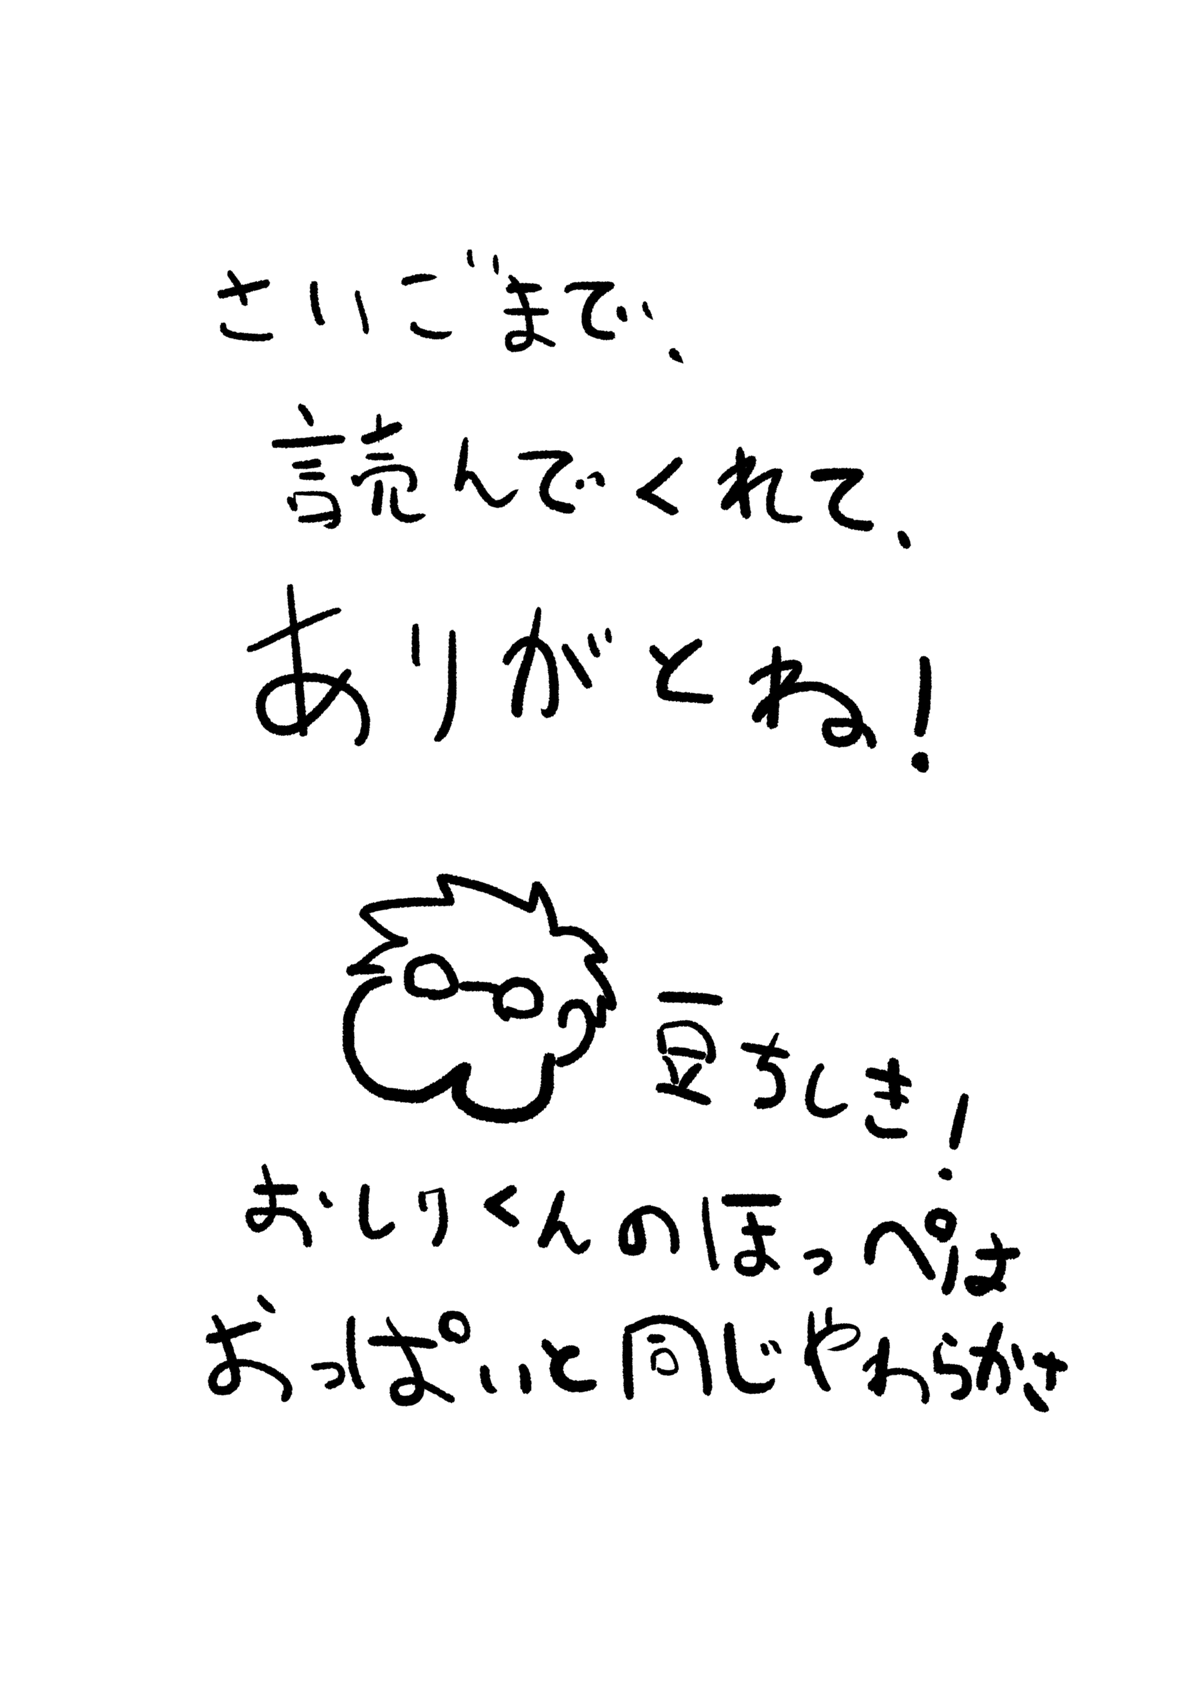 さいごまで、
読んでくれて、
ありがとね!
豆ちしき!
おしりくんのほっぺは
おっぱいと同じやわらかさ